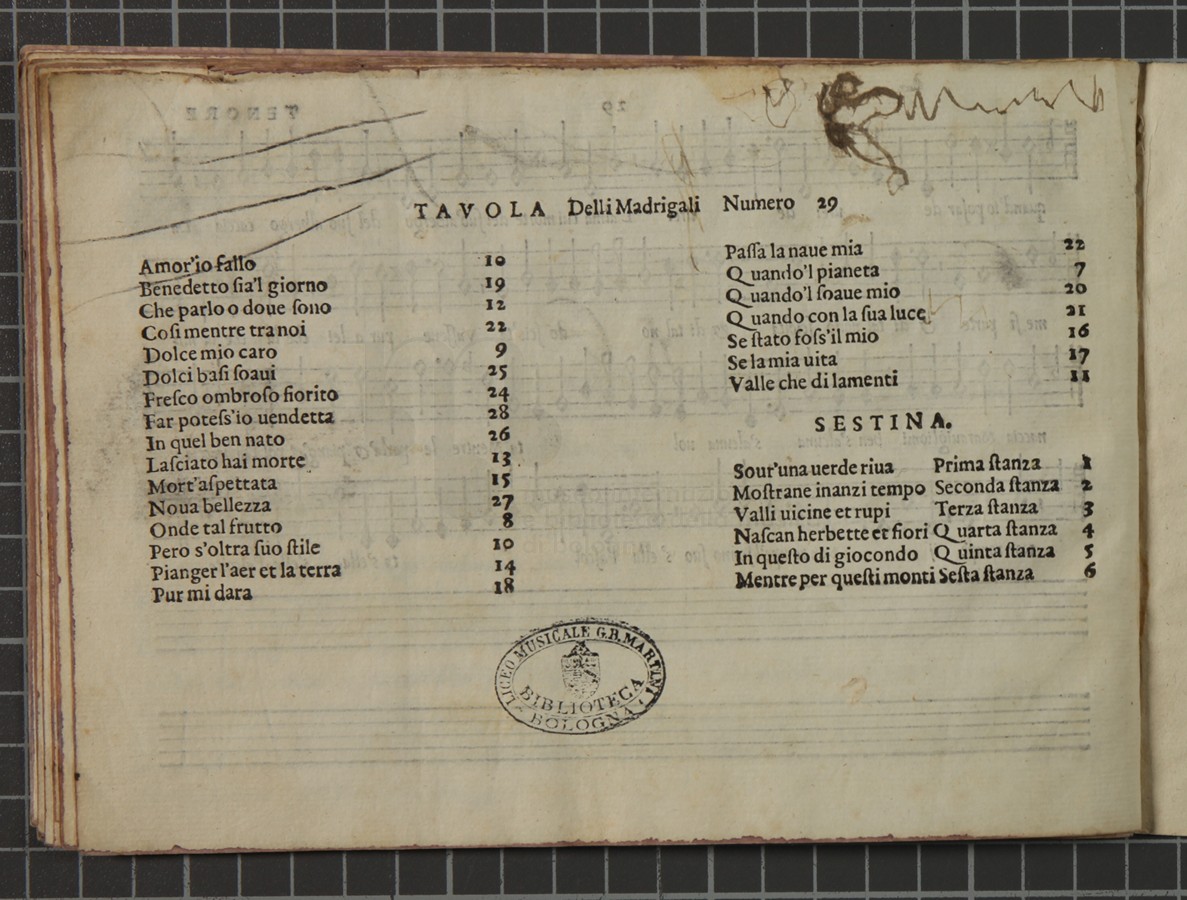 TAVOLA Delli Madrigali Numero 29
Amor'io fallo 10
Benedetto ſia'l giorno 19
Che parlo o doue ſono 12
Coſi mentre tra noi 22
Dolce mio caro 9
Dolci baſi ſoaui 25
Freſco ombroſo fiorito 24
Far poteſs'io uendetta 28
In quel ben nato 26
Laſciato hai morte 13
Mort'aſpettata 15
Noua bellezza 27
Onde tal frutto 8
Pero s'oltra ſuo ſtile 10
Pianger l'aer et la terra 14
Pur mi dara 18
Paſſa la naue mia 22
Quando'l pianeta 7
Quando'l ſoaue mio 20
Quando con la ſua luce 21
Se ſtato foſs'il mio 16
Se la mia uita 17
Valle che di lamenti 11
SESTINA.
Sour'una uerde riua Prima ſtanza 1
Moſtrane inanzi tempo Seconda ſtanza 2
Valli uicine et rupi Terza ſtanza 3
Naſcan herbette et fiori Quarta ſtanza 4
In queſto di giocondo Quinta ſtanza 5
Mentre per queſti monti Seſta ſtanza 6
LICEO MUSICALE G.B. MARTINI
BIBLIOTECA
BOLOGNA